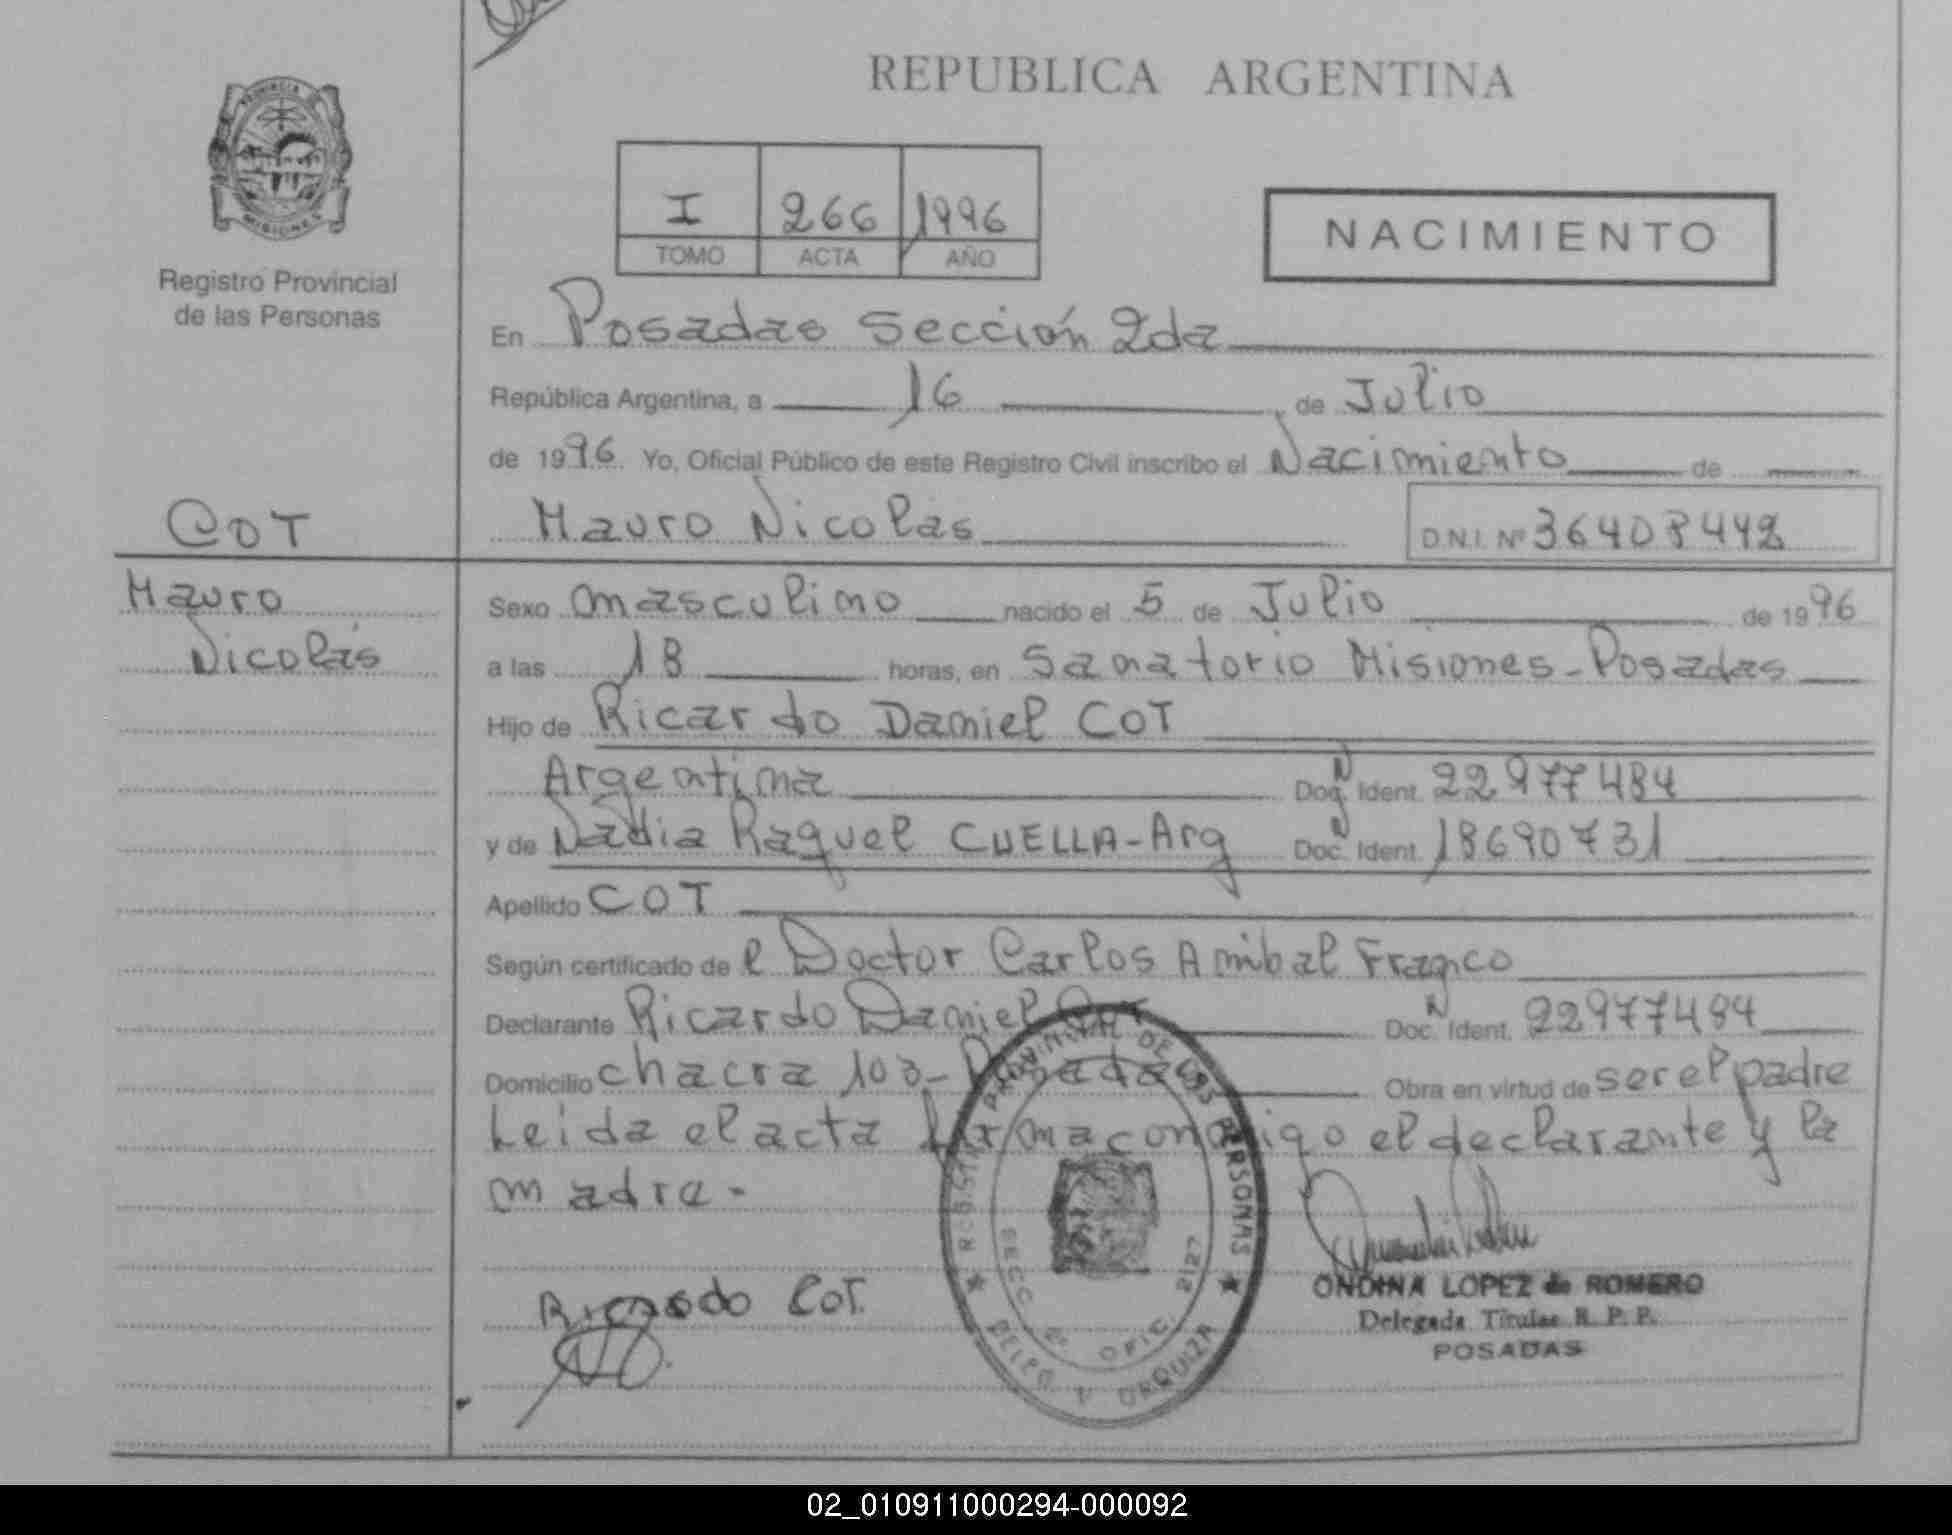 REPUBLICA ARGENTINA
PROVINCIA DE
MISIONES
Registro Provincial
de las Personas
I 266 1996
TOMO ACTA AÑO
NACIMIENTO
En Posadas Sección 2da
República Argentina, a 16 de Julio
de 1996 Yo, Oficial Público de este Registro Civil inscribo el Nacimiento de
COT
Mauro Nicolás D.N.I. Nº 36408442
Mauro
Nicolás
Sexo masculino nacido el 5 de Julio de 1996
a las 18 horas, en Sanatorio Misiones-Posadas
Hijo de Ricardo Daniel COT
Argentina Doc. Ident. N 22977484
y de Nadia Raquel CUELLA-Arg Doc. Ident. N 18690731
Apellido COT
Según certificado de l Doctor Carlos Anibal Franco
Declarante Ricardo Daniel COT Doc. Ident. N 22977484
Domicilio chacra 103-Posadas Obra en virtud de ser el padre
Leida el acta firma conmigo el declarante y la
madre-
REGISTRO PROVINCIAL DE LAS PERSONAS
SECC. 2º OFIC. 2127
DELEG. V. URQUIZA
Ricardo COT.
ONDINA LOPEZ de ROMERO
Delegada Titular R. P. P.
POSADAS
02_010911000294-000092